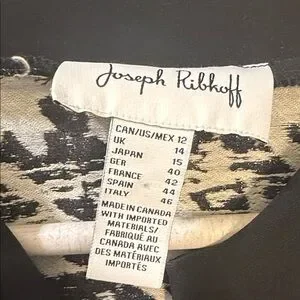 Joseph Ribkoff
CAN/US/MEX 12
UK 14
JAPAN 15
GER 40
FRANCE 42
SPAIN 44
ITALY 46
MADE IN CANADA
WITH IMPORTED
MATERIALS/
FABRIQUÉ AU
CANADA AVEC
DES MATÉRIAUX
IMPORTÉS